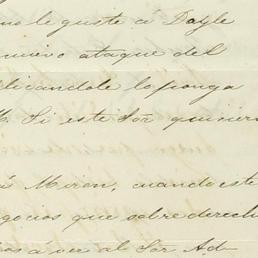 no le guste á Dayle
nuevo ataque del
plicandole lo ponga
Si este Sor quisier
Miron, cuando este
gocios que sobre derech
os á ver al Sor Ad